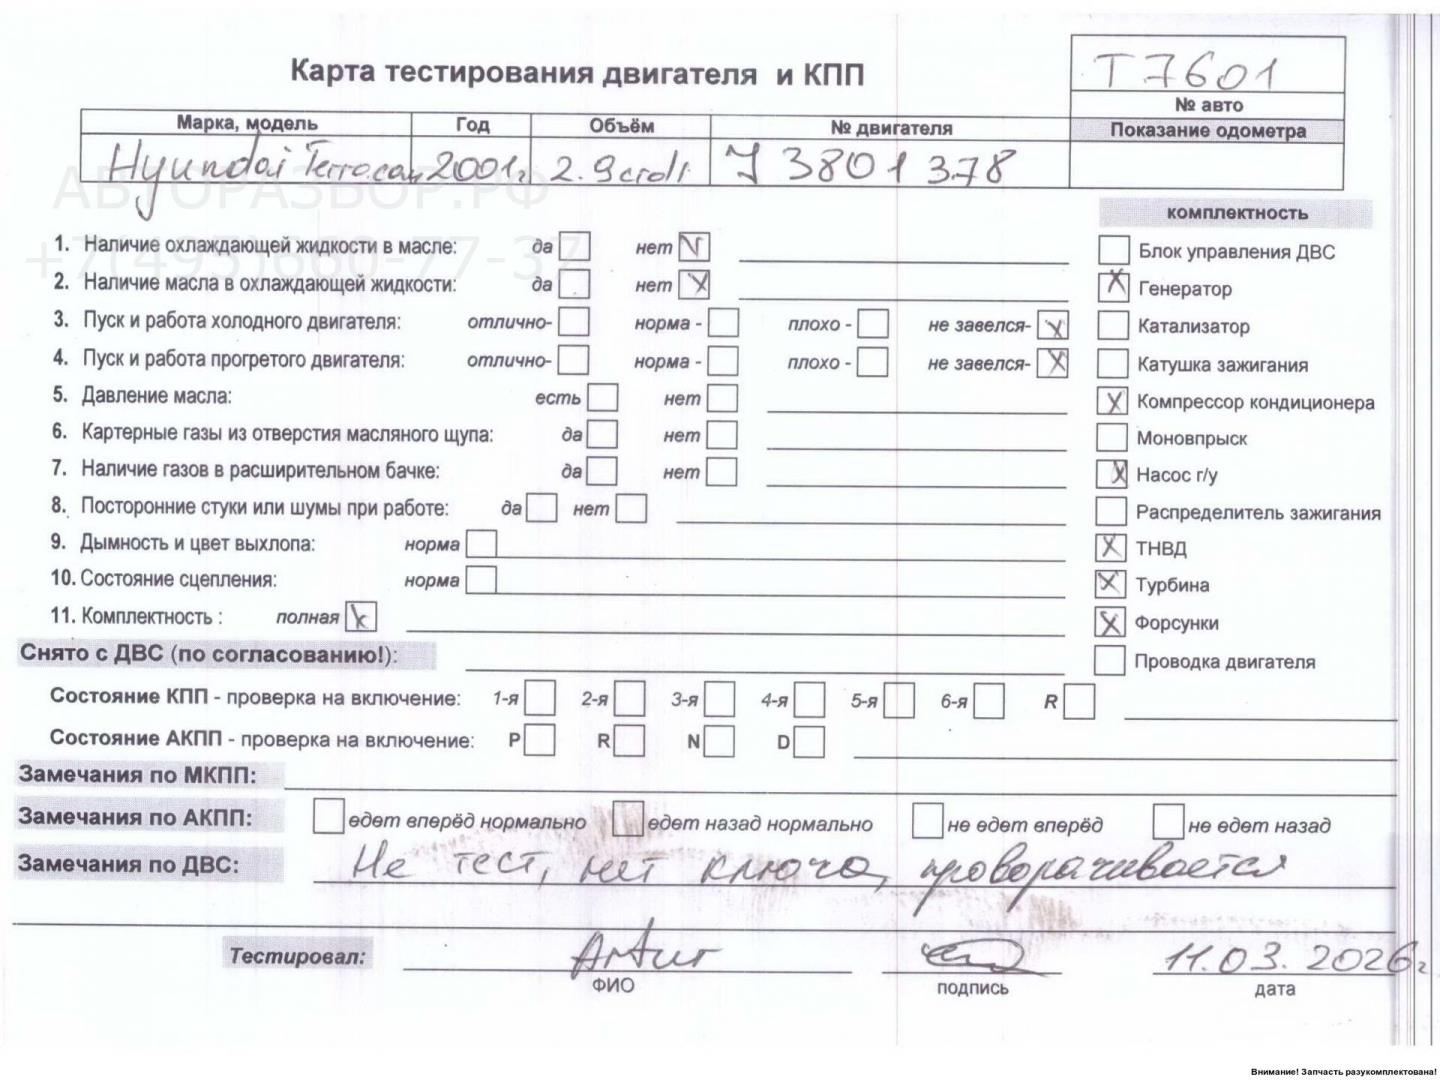 Карта тестирования двигателя и КПП
T7601
№ авто
Показание одометра
Марка, модель Год Объём № двигателя
Hyundai Terracan 2001г. 2.9crdi J3801378
АВТОРАЗБОР.РФ
+7(495)660-77-37
комплектность
1. Наличие охлаждающей жидкости в масле: да нет V
Блок управления ДВС
2. Наличие масла в охлаждающей жидкости: да нет X
X Генератор
3. Пуск и работа холодного двигателя: отлично- норма - плохо - не завелся- X
Катализатор
4. Пуск и работа прогретого двигателя: отлично- норма - плохо - не завелся- X
Катушка зажигания
5. Давление масла: есть нет
X Компрессор кондиционера
6. Картерные газы из отверстия масляного щупа: да нет
Моновпрыск
7. Наличие газов в расширительном бачке: да нет
X Насос г/у
8. Посторонние стуки или шумы при работе: да нет
Распределитель зажигания
9. Дымность и цвет выхлопа: норма
X ТНВД
10. Состояние сцепления: норма
X Турбина
11. Комплектность : полная X
X Форсунки
Снято с ДВС (по согласованию!):
Проводка двигателя
Состояние КПП - проверка на включение: 1-я 2-я 3-я 4-я 5-я 6-я R
Состояние АКПП - проверка на включение: P R N D
Замечания по МКПП:
Замечания по АКПП: едет вперёд нормально едет назад нормально не едет вперёд не едет назад
Замечания по ДВС: Не тест, нет ключа, проворачивается
Тестировал: Artur 11.03.2026г
ФИО подпись дата
Внимание! Запчасть разукомплектована!